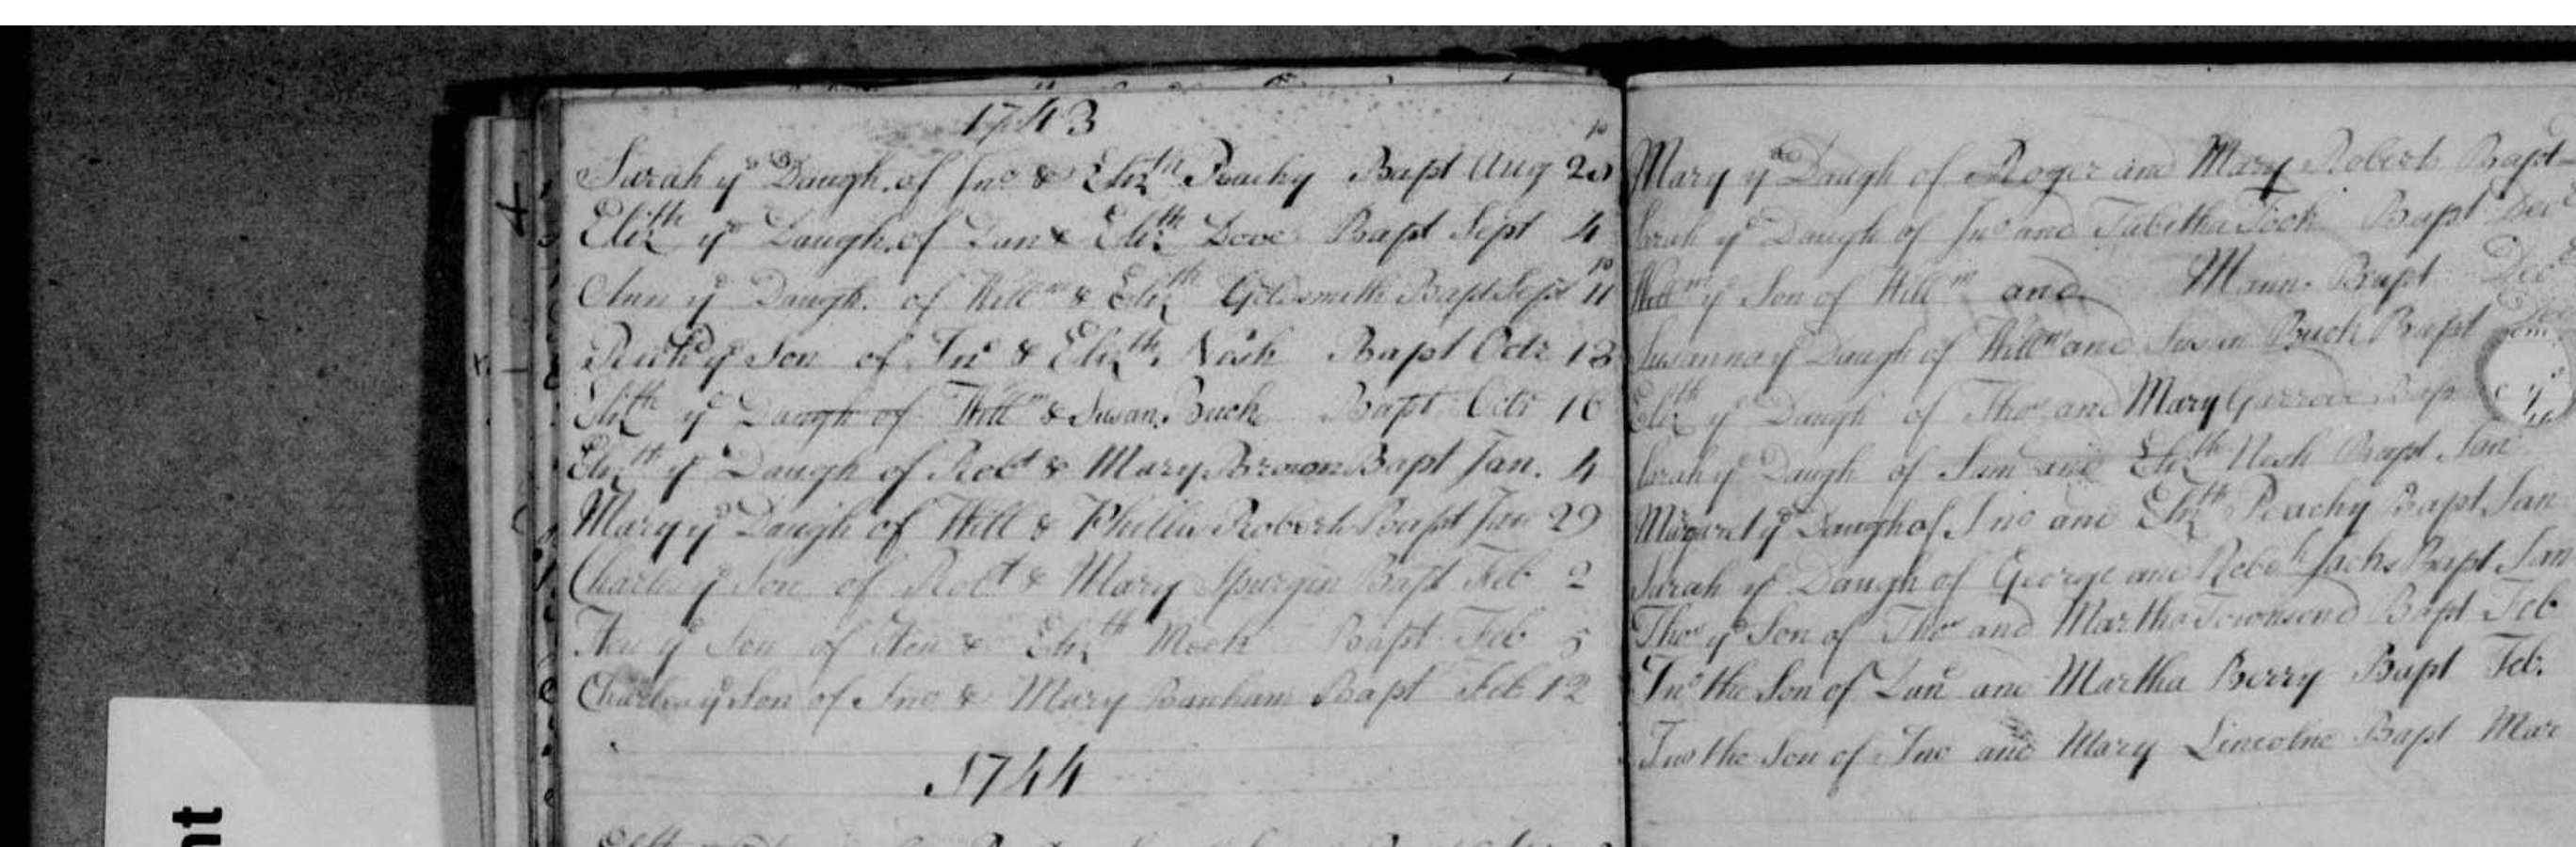 1743
Sarah ye Daugh. of Jno & Elizth Peachy Bapt Aug 20
Elizth ye Daugh. of Dan & Elizth Dove Bapt Sept 4
Ann ye Daugh. of Willm & Elizth Goldsmith Bapt Sept 11
ye Son of Jno & Elizth Nesh Bapt Octr 13
Elizth ye Daugh of Willm & Susan Buck Bapt Octr 16
Elizth ye Daugh of Robt & Mary Brown Bapt Jan. 4
Mary ye Daugh of Will & Phillis Roberts Bapt Jan 29
Charles ye Son of Robt & Mary Spurgin Bapt Feb 2
Hen ye Son of Hen & Elizth Bapt Feb 5
Charles ye Son of Jno & Mary Banham Bapt Feb 12
1744
Mary ye Daugh of Roger and Mary Roberts Bapt
Sarah ye Daugh of Jno and Tabitha Took Bapt Decr
Willm ye Son of Willm and Mann Bapt Decr
Susanna ye Daugh of Willm and Susan Buck Bapt
Elizth ye Daugh of Thos and Mary Bapt
Sarah ye Daugh of Sam and Elizth Nesh Bapt Jan
Margaret ye Daugh of Jno and Elizth Peachy Bapt Jan
Sarah ye Daugh of George and Jacks Bapt Jan
Thos ye Son of Thos and Martha Townsend Bapt Feb
Jno the Son of Dan and Martha Berry Bapt Feb.
Jno the Son of Jno and Mary Lincolne Bapt Mar
nt